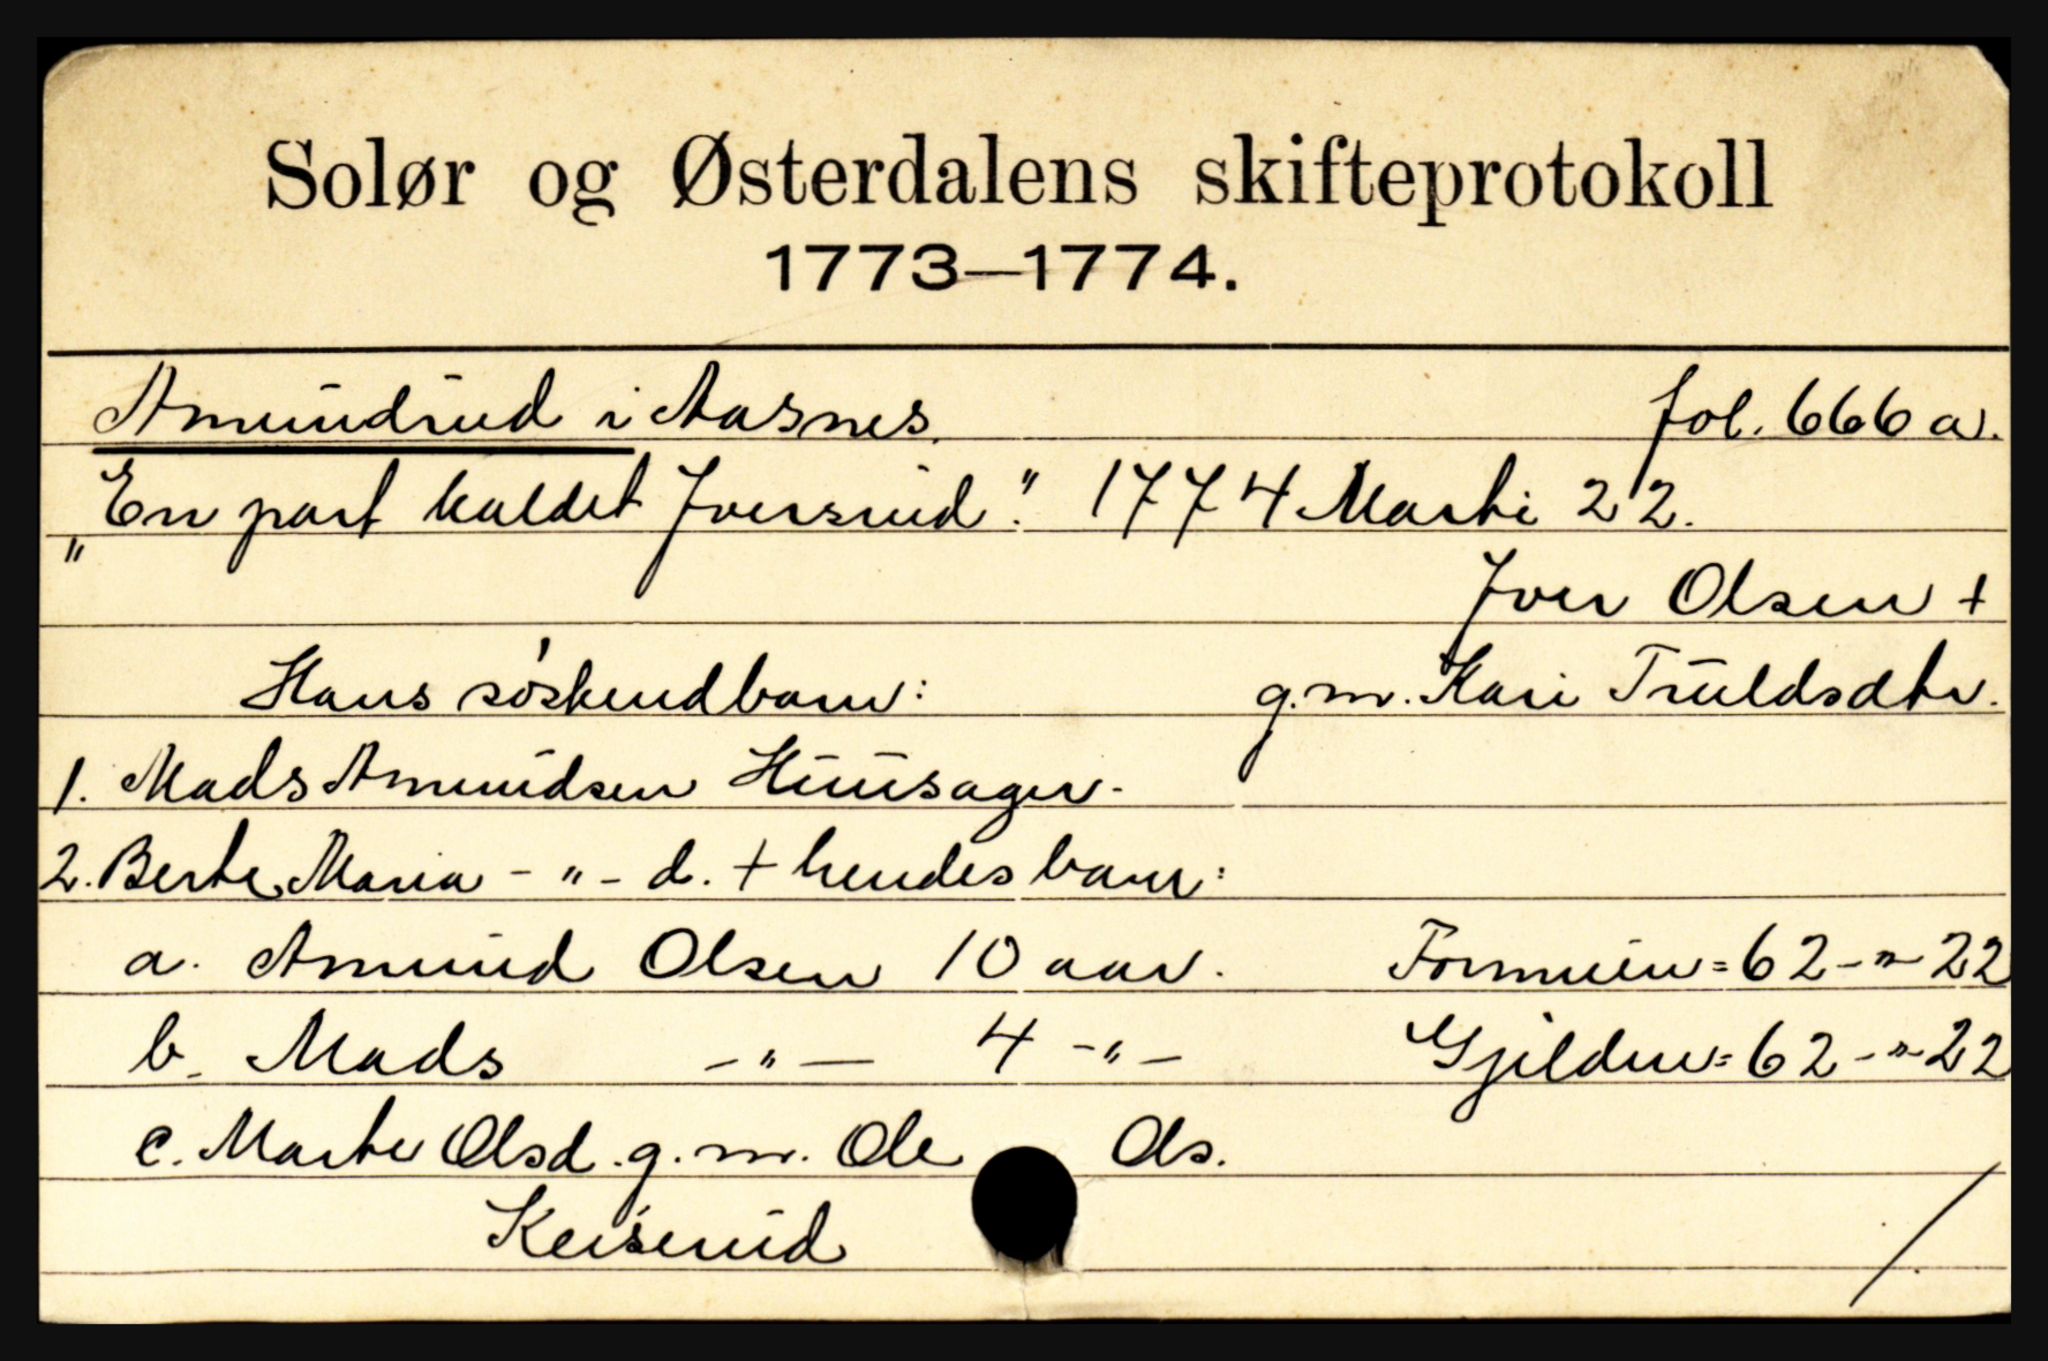 Solør og Østerdalens skifteprotokoll
1773—1774.
Amundrud i Aasnes. fol. 666 a.
"En part kaldet Iversrud". 1774 Marti 22.
Iver Olsen +
Hans søskendbarn: g.m. Kari Truldsdtr.
1. Mads Amundsen Huusager.
2. Berte Maria - " - d. + hendes barn:
a. Amund Olsen 10 aar. Formuen = 62 - " - 22
b. Mads - " - 4 - " - Gjelden = 62 - " - 22
c. Marte Olsd. g.m. Ole Os.
Keiserud